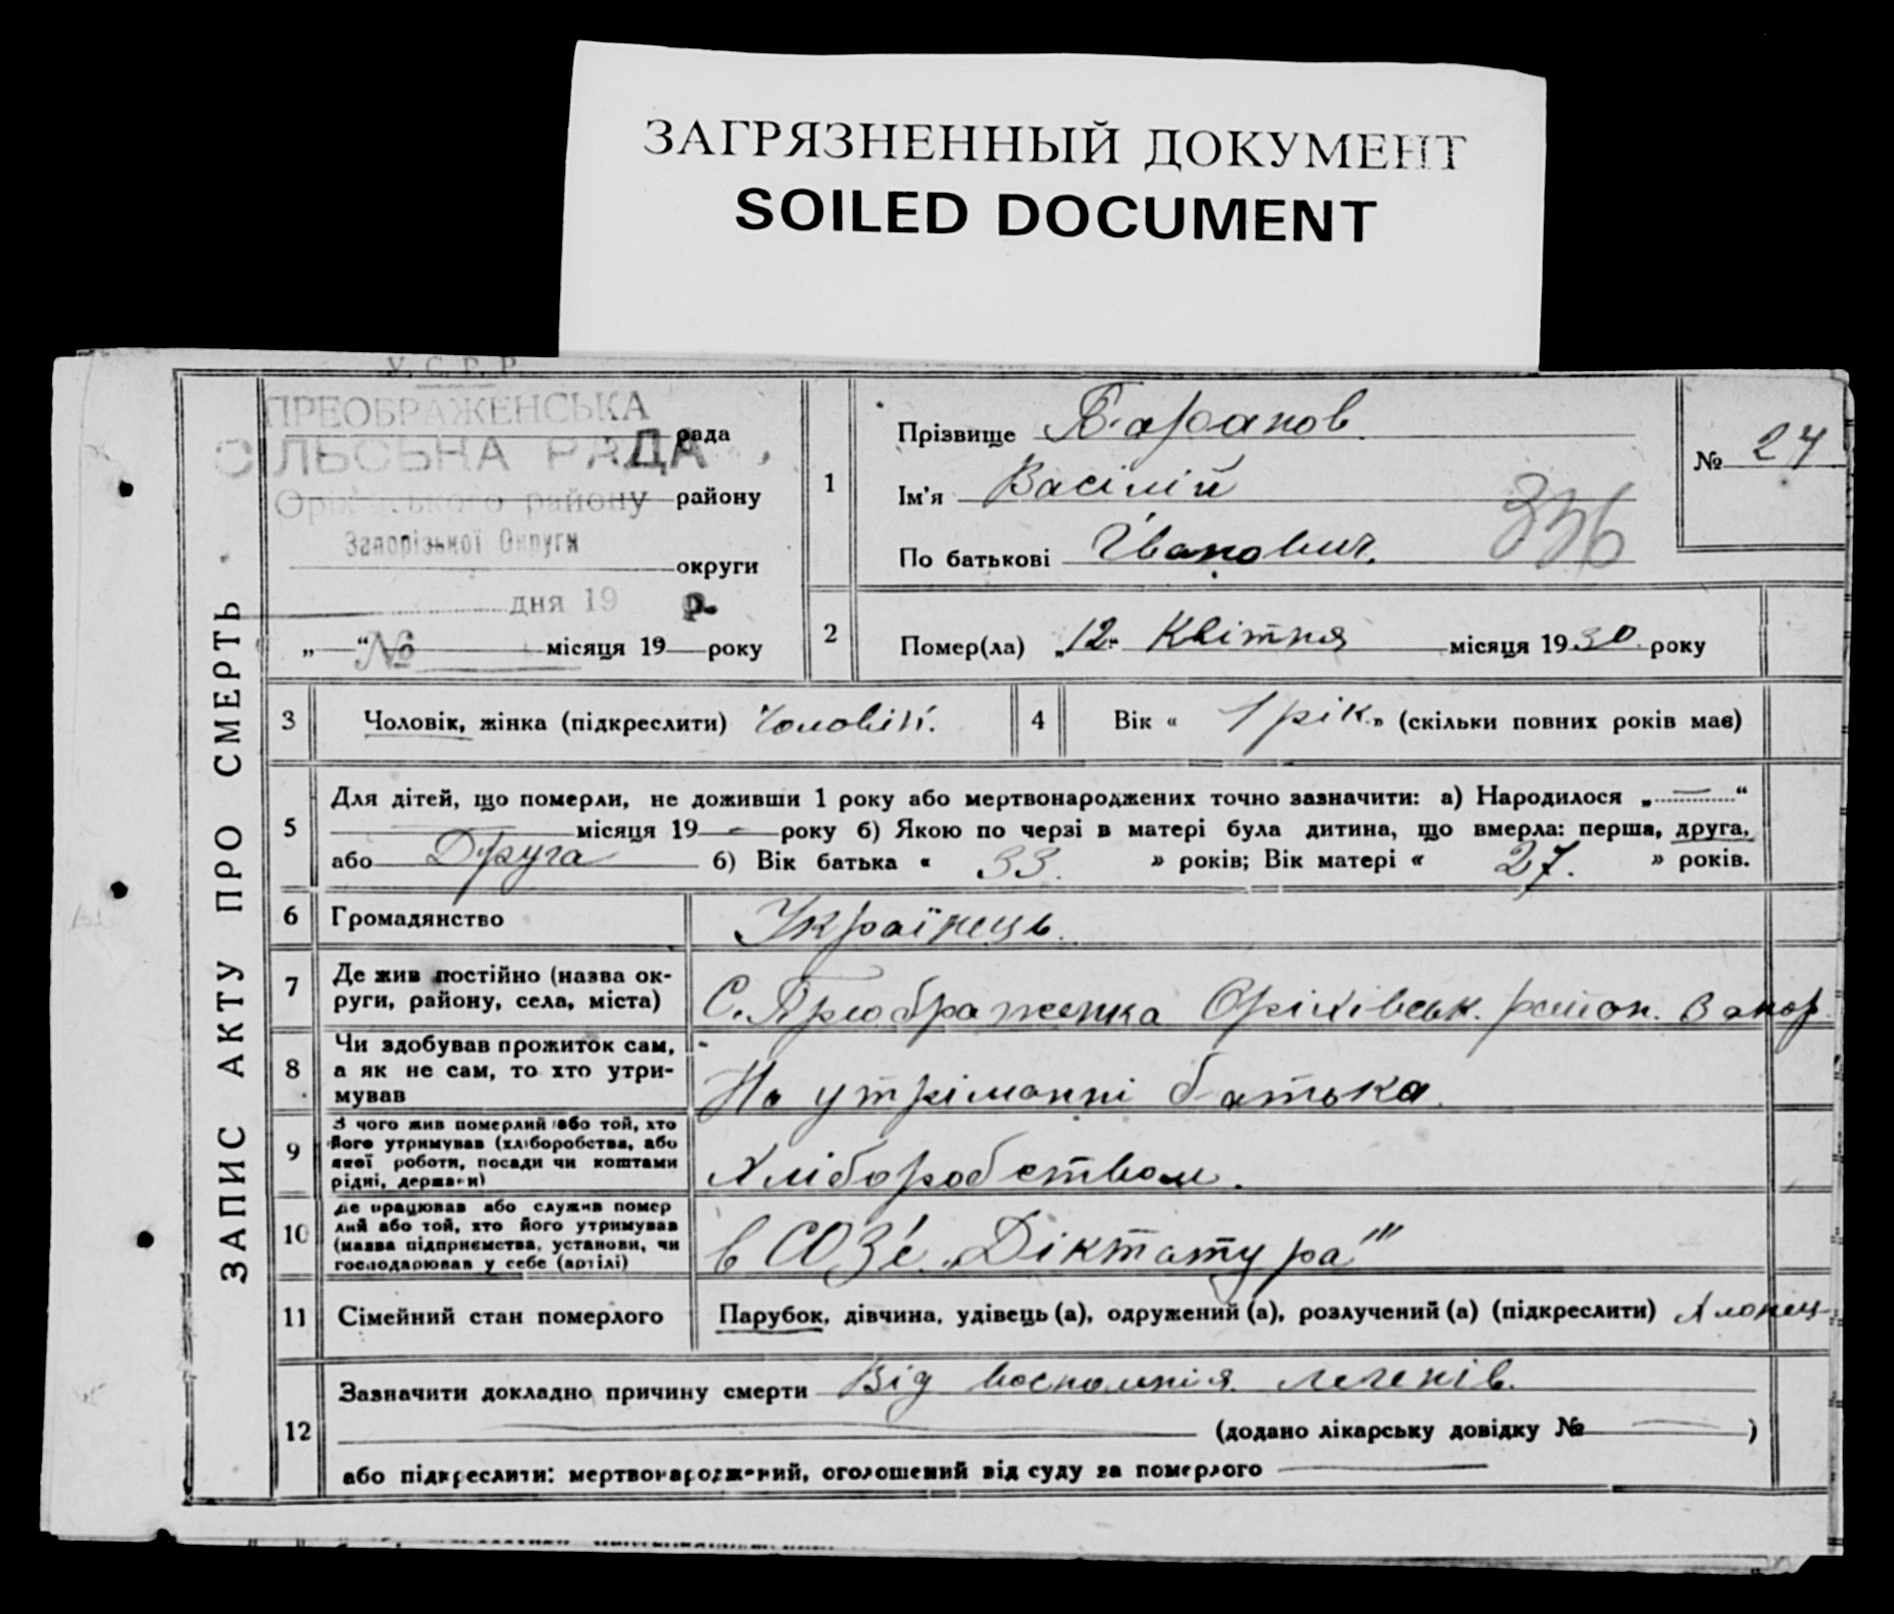 ЗАГРЯЗНЕННЫЙ ДОКУМЕНТ
SOILED DOCUMENT
У. С. Р. Р.
ПРЕОБРАЖЕНСЬКА
СІЛЬСЬКА РАДА рада
району району
Запорізької Округи
округи
дня 19 р.
„ “ № місяця 19 року
ЗАПИС АКТУ ПРО СМЕРТЬ
1
Прізвище Баранов
Ім'я Василій
По батькові Іванович.
336
№ 24
2
Помер(ла) „12 Квітня місяця 1930 року
3 Чоловік, жінка (підкреслити) Чоловік.
4 Вік « 1 рік » (скільки повних років має)
5
Для дітей, що померли, не доживши 1 року або мертвонароджених точно зазначити: а) Народилося „—“
місяця 19 — року б) Якою по черзі в матері була дитина, що вмерла: перша, друга,
або Друга б) Вік батька « 33. » років; Вік матері « 27. » років.
6 Громадянство Українець.
7 Де жив постійно (назва ок-
руги, району, села, міста) С. Преображенка Оріхівськ. район. Запор.
8 Чи здобував прожиток сам,
а як не сам, то хто утри-
мував На утріманні батька.
9 З чого жив померлий або той, хто
його утримував (хліборобства, або
якої роботи, посади чи коштами
рідні, держави) Хліборобством.
10 Де працював або служив помер
лий або той, хто його утримував
(назва підприємства, установи, чи
господарював у себе (артілі) в СОЗ'є „Діктатура"
11 Сімейний стан померлого Парубок, дівчина, удівець (а), одружений (а), розлучений (а) (підкреслити) Хлопец
12
Зазначити докладно причину смерти Від воспаления легенів.
(додано лікарську довідку № — )
або підкреслити: мертвонароджений, оголошений від суду за померлого —